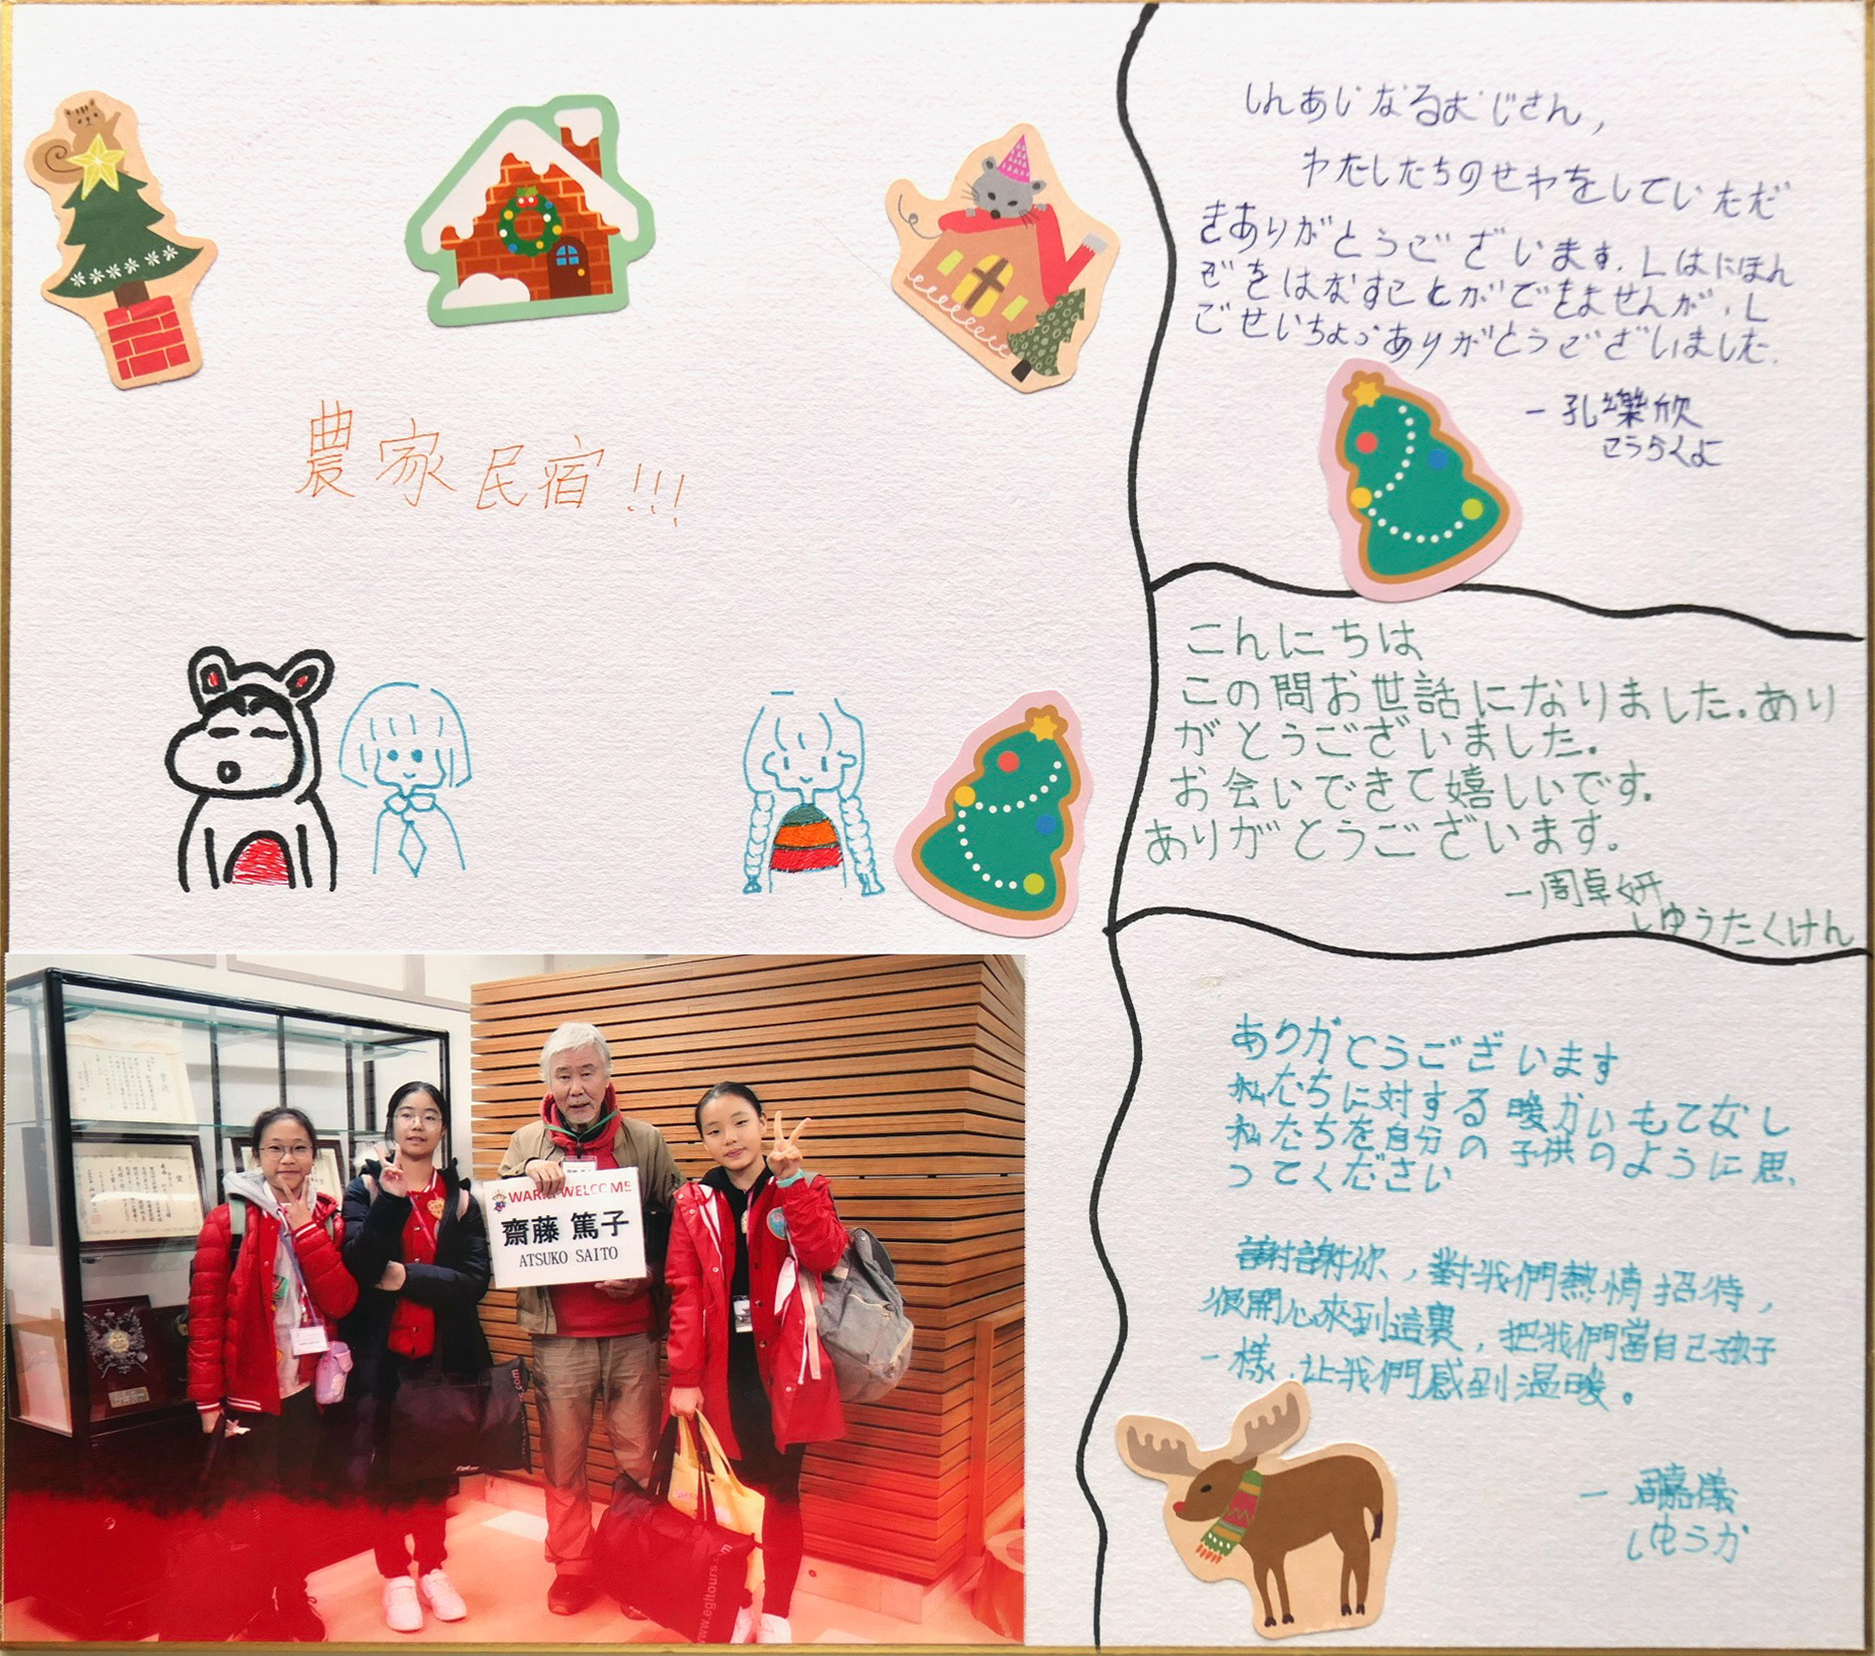 農家民宿!!!
しんあいなるむじさん,
わたしたちのせわをしていただ
きありがとうございます.しはにほん
ごをはなすことができませんが,し
ごせいちょうありがとうございました.
- 孔樂欣
こうらくよ
こんにちは
この間お世話になりました。あり
がとうございました。
お会いできて嬉しいです。
ありがとうございます。
-周卓妍
しゆうたくけん
ありがとうございます
私たちに対する暖かいもてなし
私たちを自分の子供のように思、
ってください
謝謝你,對我們熱情招待,
很開心來到這裏,把我們當自己孩子
一樣,让我們感到温暖。
- 周嘉儀
しゆうか
WARM WELCOME
齋藤 篤子
ATSUKO SAITO
www.egltours.com